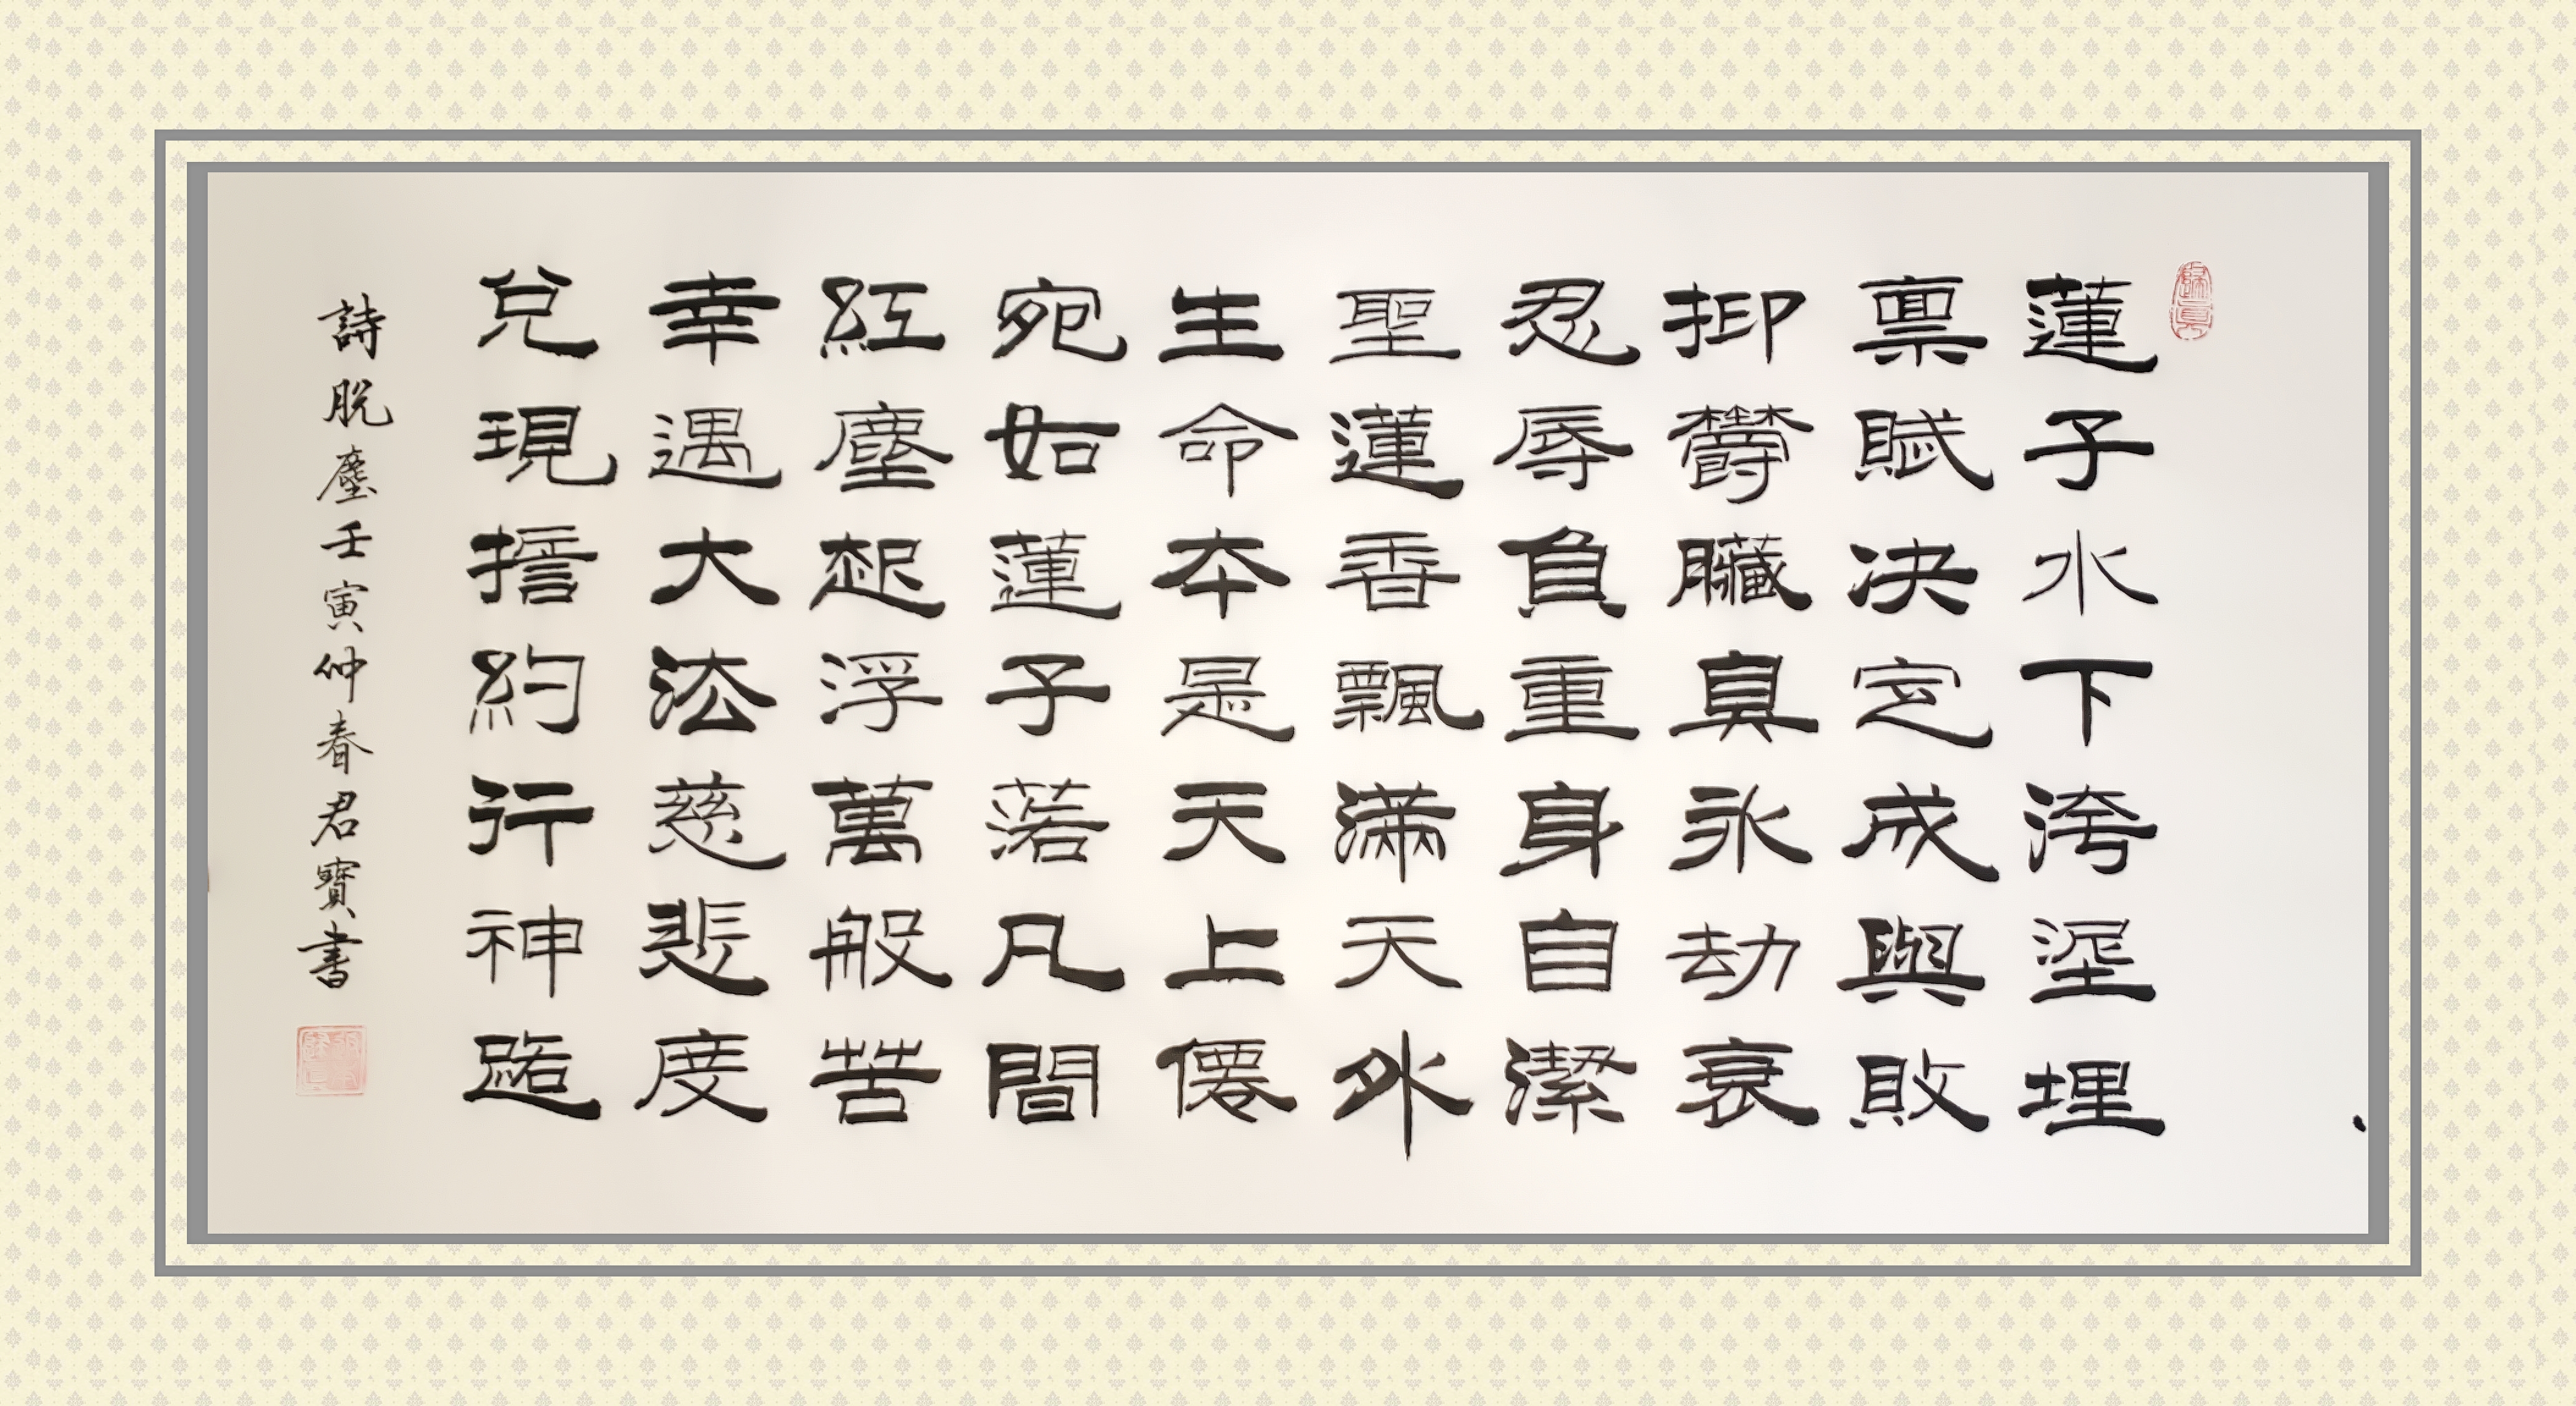 蓮子水下洿埿埋
禀賦决定成與敗
抑欝臟真永劫衰
忍辱負重身自潔
聖蓮香飄滿天外
生命本是天上僊
宛如蓮子落凡間
紅塵起浮萬般苦
幸遇大法慈悲度
兌現擔約行神路
詩脫塵壬寅仲春君寶書